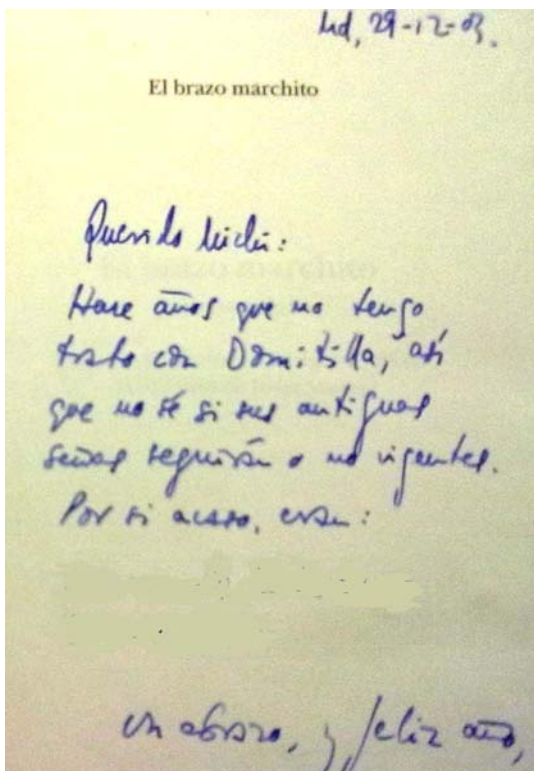 Md, 29-12-03.
El brazo marchito
Querido Michi:
Hace años que no tengo
trato con Domitilla, así
que no sé si sus antiguas
señas seguirán o no vigentes.
Por si acaso, eran:
Un abrazo, y feliz año,